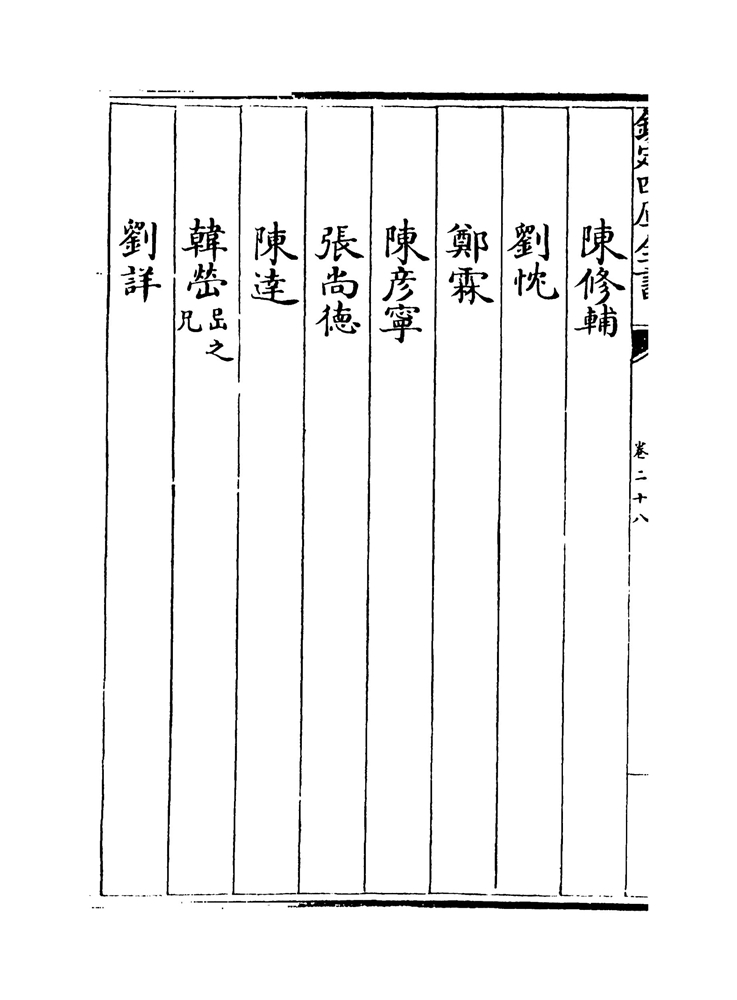 欽定四庫全書
卷二十八
陳修輔
劉忱
鄭霖
陳彦寧
張尚德
陳逹
韓㟧㠯之
兄
劉詳